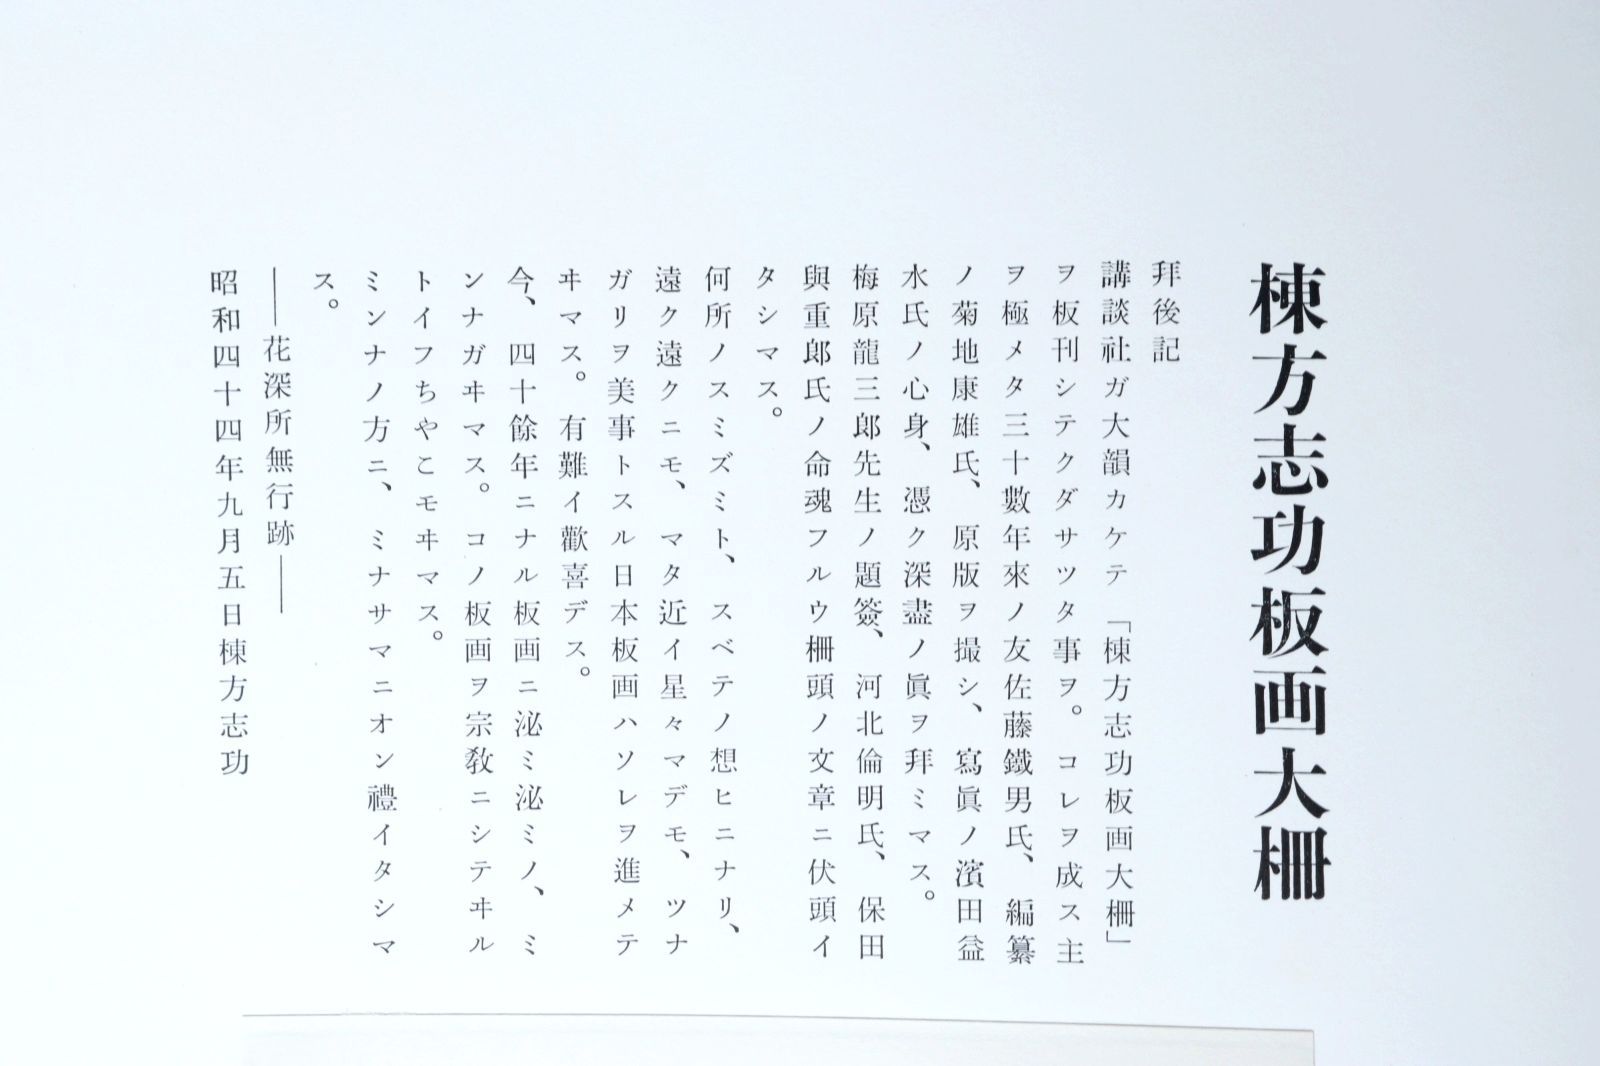 棟方志功板画大柵
拜後記
講談社ガ大韻カケテ「棟方志功板画大柵」
ヲ板刊シテクダサツタ事ヲ。コレヲ成ス主
ヲ極メタ三十數年來ノ友佐藤鐵男氏、編纂
ノ菊地康雄氏、原版ヲ撮シ、寫眞ノ濱田益
水氏ノ心身、憑ク深盡ノ眞ヲ拜ミマス。
梅原龍三郎先生ノ題簽、河北倫明氏、保田
與重郎氏ノ命魂フルウ柵頭ノ文章ニ伏頭イ
タシマス。
何所ノスミズミト、スベテノ想ヒニナリ、
遠ク遠クニモ、マタ近イ星々マデモ、ツナ
ガリヲ美事トスル日本板画ハソレヲ進メテ
ヰマス。有難イ歡喜デス。
今、四十餘年ニナル板画ニ泌ミ泌ミノ、ミ
ンナガヰマス。コノ板画ヲ宗教ニシテヰル
トイフちやこモヰマス。
ミンナノ方ニ、ミナサマニオン禮イタシマ
ス。
――花深所無行跡――
昭和四十四年九月五日棟方志功